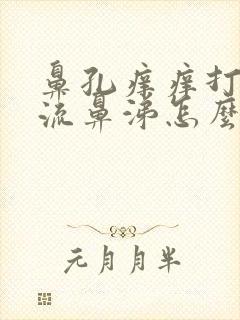 鼻孔痒痒打
流鼻涕怎麽
元月月半